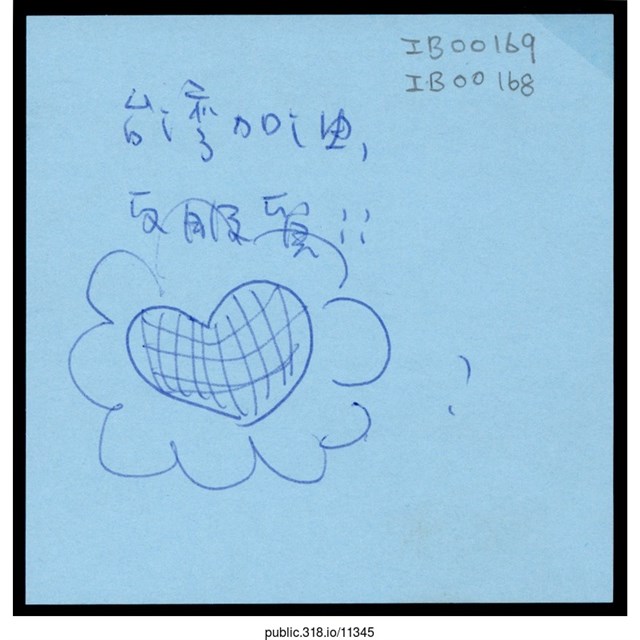 IB00169
IB00168
台湾加油,
反服貿!!
public.318.io/11345